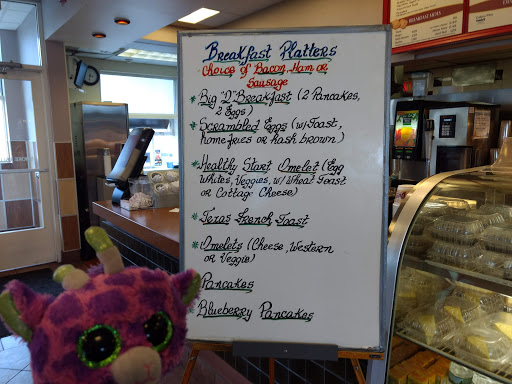 Breakfast Platters
- Choice of Bacon, Ham or
Sausage
* Big "D" Breakfast (2 Pancakes,
2 Eggs)
* Scrambled Eggs (w/Toast,
homefries or hash brown)
* Healthy Start Omelet (Egg
Whites, Veggies, w/Wheat Toast
or Cottage Cheese)
* Texas French Toast
* Omelets (Cheese, Western
or Veggie)
Pancakes
Blueberry Pancakes